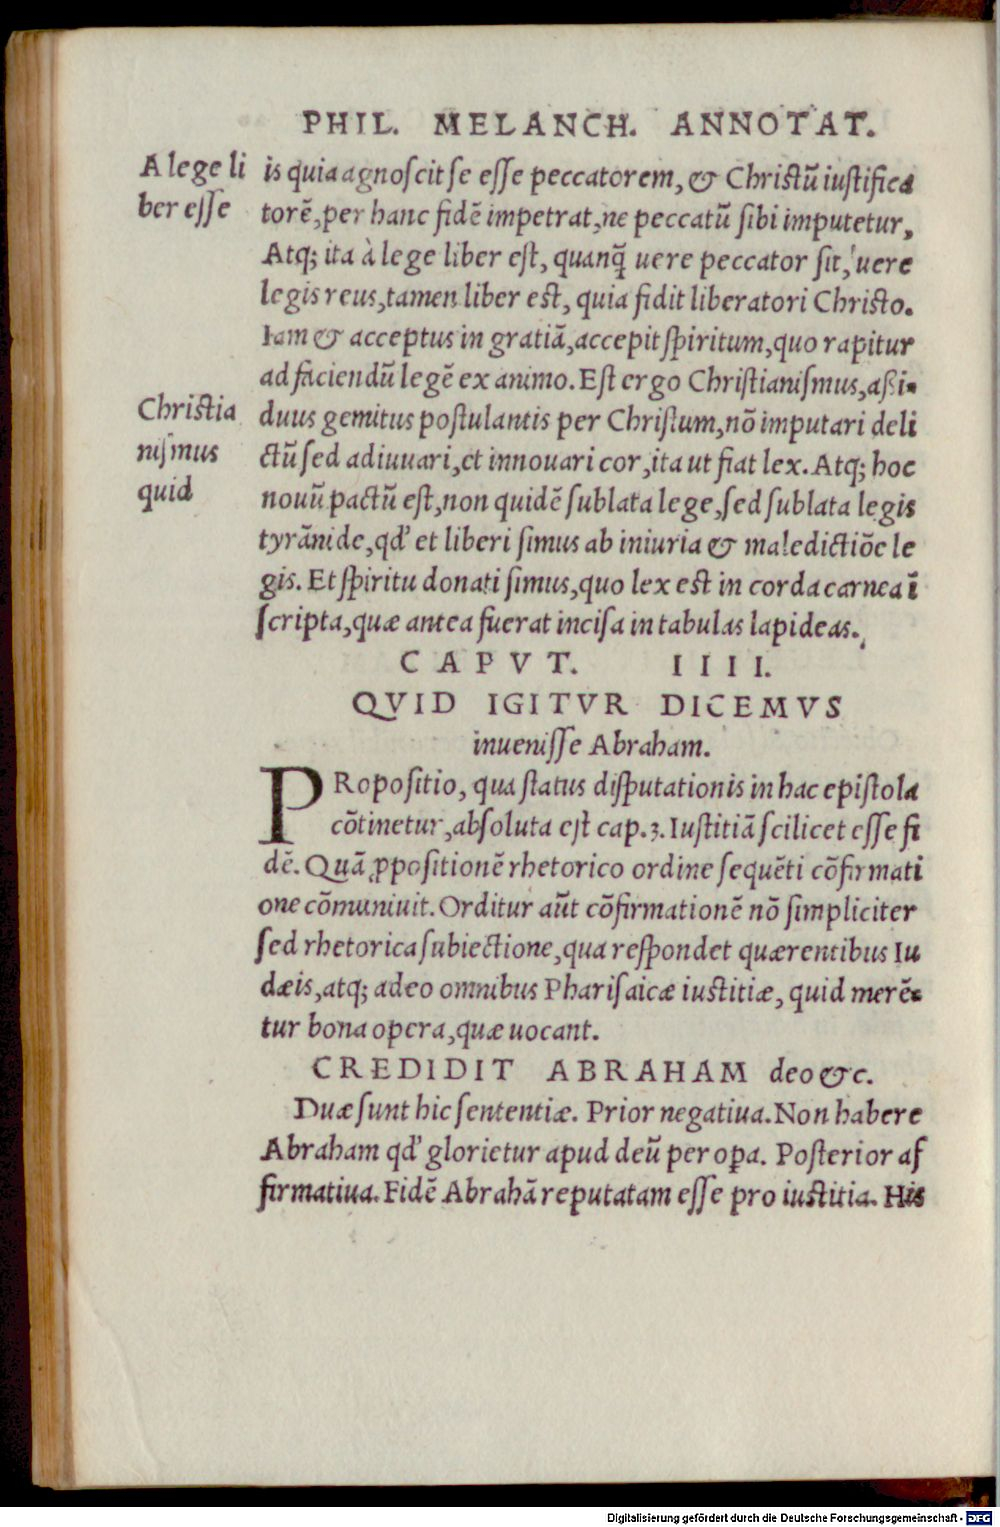 PHIL. MELANCH. ANNOTAT.
A lege li
ber esse
is quia agnoscit se esse peccatorem, & Christũ iustifica
torẽ, per hanc fidẽ impetrat, ne peccatũ sibi imputetur,
Atq; ita à lege liber est, quanq̃ uere peccator sit, uere
legis reus, tamen liber est, quia fidit liberatori Christo.
Iam & acceptus in gratiã, accepit spiritum, quo rapitur
ad faciendũ legẽ ex animo. Est ergo Christianismus, aßi-
Christia
nismus
quid
duus gemitus postulantis per Christum, nõ imputari deli
ctũ sed adiuuari, et innouari cor, ita ut fiat lex. Atq; hoc
nouũ pactũ est, non quidẽ sublata lege, sed sublata legis
tyrãnide, qď et liberi simus ab iniuria & maledictiõe le
gis. Et spiritu donati simus, quo lex est in corda carnea ĩ
scripta, quæ antea fuerat incisa in tabulas lapideas.
CAPVT. IIII.
QVID IGITVR DICEMVS
inuenisse Abraham.
PRopositio, qua status disputationis in hac epistola
cõtinetur, absoluta est cap. 3. Iustitiã scilicet esse fi
dẽ. Quã ꝓpositionẽ rhetorico ordine sequẽti cõfirmati
one cõmuniuit. Orditur aũt cõfirmationẽ nõ simpliciter
sed rhetorica subiectione, qua respondet quærentibus Iu
dæis, atq; adeo omnibus Pharisaicæ iustitiæ, quid merẽ-
tur bona opera, quæ uocant.
CREDIDIT ABRAHAM deo &c.
Duæ sunt hic sententiæ. Prior negatiua. Non habere
Abraham qď glorietur apud deũ per oꝑa. Posterior af
firmatiua. Fidẽ Abrahã reputatam esse pro iustitia. His
Digitalisierung gefördert durch die Deutsche Forschungsgemeinschaft - DFG